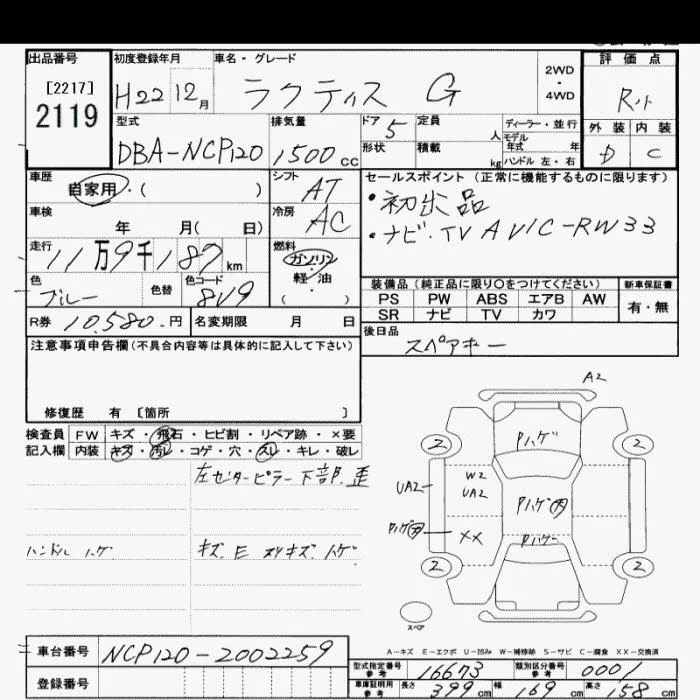 出品番号
[2217]
2119
初度登録年月
H22 12月
車名・グレード
ラクティス G
2WD
・
4WD
評価点
R
外装 内装
D C
型式
DBA-NCP120
排気量
1500cc
ドア 5
形状
定員 人
積載 kg
ディーラー・並行
モデル年式 年
ハンドル 左・右
車歴
自家用・( )
シフト
AT
車検
年 月( 日)
冷房
AC
走行
11万9千187km
燃料
ガソリン
軽・油
( )
色
ブルー
色替
色コード
8V9
R券 10,580円
名変期限 月 日
セールスポイント (正常に機能するものに限ります)
・初出品
・ナビ・TV AVIC-RW33
装備品(純正品に限り○をつけてください)
新車保証書
PS PW ABS エアB AW
SR ナビ TV カワ
有・無
後日品
スペアキー
注意事項申告欄(不具合内容等は具体的に記入して下さい)
修復歴 有 [箇所 ]
検査員記入欄
FW キズ・飛石・ヒビ割・リペア跡・×要
内装 キズ・汚レ・コゲ・穴・スレ・キレ・破レ
左センターピラー下部、歪
ハンドル ハゲ
キズ、E スリキズ、ハゲ
A2
Pハゲ
2
2
UA2
W2
UA2
Pハゲ
Pハゲ
XX
Pハゲ
2
2
スペア
A-キズ E-エクボ U-凹み W-補修跡 S-サビ C-腐食 XX-交換済
車台番号 NCP120-2002259
登録番号
型式指定番号 参考 16673
類別区分番号 参考 0001
車庫証明用 参考 長さ 399cm 幅 169cm 高さ 158cm